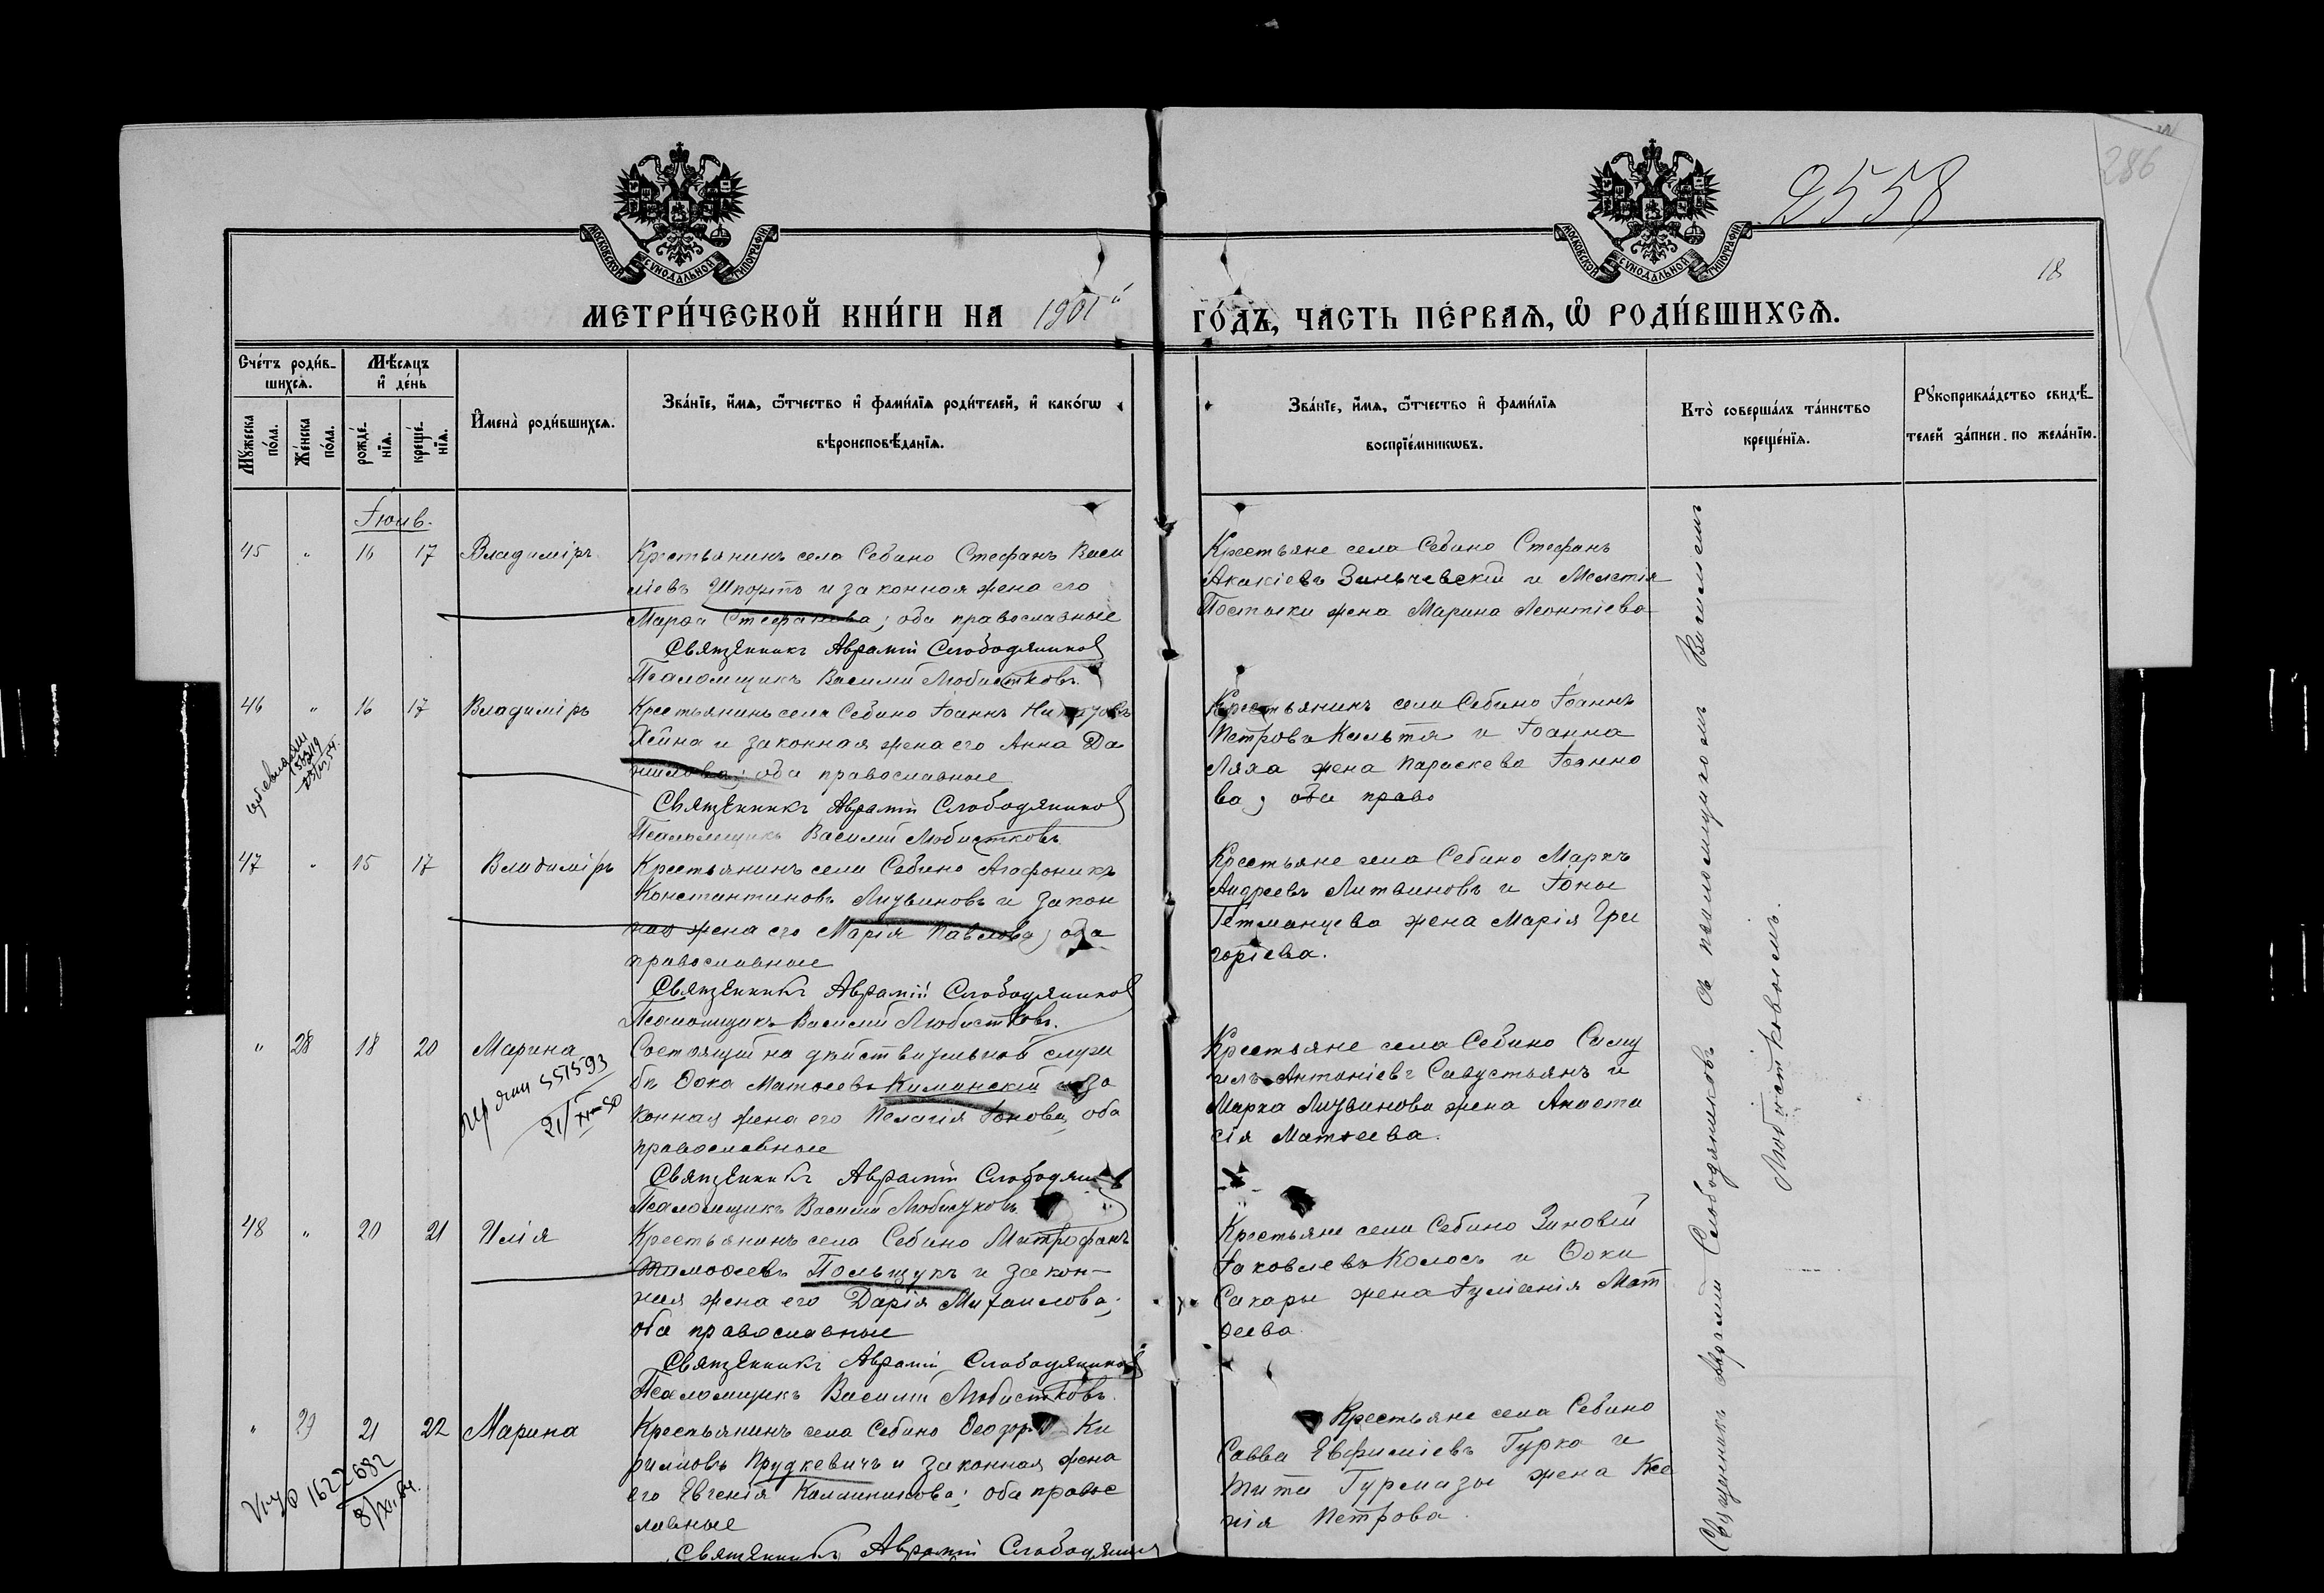 2558
286
18
МОСКОВСКОЙ СѴНОДАЛЬНОЙ ТИПОГРАФІИ
МОСКОВСКОЙ СѴНОДАЛЬНОЙ ТИПОГРАФІИ
МЕТРИ́ЧЕСКОЙ КНИ́ГИ НА 1901й ГО́ДЪ, ЧА́СТЬ ПЕ́РВАѦ, Ѡ҆ РОДИ́ВШИХСѦ.
Сче́тъ роди́в-
шихсѧ.
Мꙋ́жеска по́ла.
Же́нска по́ла.
Мѣ́сяцъ
и҆ де́нь
рожде́-
нїѧ.
креще́-
нїѧ.
И҆мена̀ роди́вшихсѧ.
Зва́нїе, и҆́мѧ, ѻ҆́тчество и҆ фами́лїѧ роди́телей, и҆ како́гѡ
вѣроисповѣ́данїѧ.
Зва́нїе, и҆́мѧ, ѻ҆́тчество и҆ фами́лїѧ
воспрїе́мникѡвъ.
Кто̀ соверша́лъ та́инство
креще́нїѧ.
Рꙋкоприкла́дство свидѣ́-
телей за́писи по жела́нїю.
Іюнь.
45 " 16 17 Владиміръ
Крестьянинъ села Себино Стефанъ Васи
ліевъ Шпортъ и законная жена его
Марѳа Стефанова; оба православные
Священникъ Аврамій Слободяников
Псаломщикъ Василій Любистковъ.
Крестьяне села Себино Стефанъ
Акакіевъ Зиньчевскій и Мелетія
Постыки жена Марина Леонтіева
46 " 16 17 Владиміръ
Крестьянинъ села Себино Іоаннъ
и законная жена его Анна Да
нилова; оба православные
Священникъ Аврамій Слободяников
Псаломщикъ Василій Любистковъ
Крестьянинъ села Себино Іоаннъ
Петровъ Кильтя и Іоанна
Ляха жена Параскева Іоанно
ва; оба право
47 " 15 17 Владиміръ
Крестьянинъ села Себино Агафоникъ
Константиновъ Литвиновъ и закон
ная жена его Марія Павлова; оба
православные
Священникъ Аврамій Слободяников
Псаломщикъ Василій Любистковъ.
Крестьяне села Себино Маркъ
Андреевъ Литвиновъ и Іоны
Гетманцева жена Марія Гри
горіева.
" 28 18 20 Марина
551593
Состоящій на дѣйствительной служ
бѣ Ѳока Матѳеевъ Киманскій и за
конная жена его Пелагія Іонова, оба
православные
Священникъ Аврамій Слободяник
Псаломщикъ Василій Любистковъ
Крестьяне села Себино Саму
илъ Антоніевъ Савустьянъ и
Марка Литвинова жена Анаста
сія Матѳеева.
48 " 20 21 Илія
Крестьянинъ села Себино Митрофанъ
Тимоѳеевъ Польщукъ и закон-
ная жена его Дарія Михаилова;
оба православные
Священникъ Аврамій Слободяников
Псаломщикъ Василій Любистковъ.
Крестьяне села Себино Зиновій
Іаковлевъ Колосъ и Ѳоки
Сахары жена Іуліанія Мат
ѳеева.
" 29 21 22 Марина
1622682
Крестьянинъ села Себино Ѳеодоръ Ки
рилловъ Прудкевичъ и законная жена
его Евгенія Калинникова; оба правос
лавные
Священникъ Аврамій Слободяник
Крестьяне села Себино
Савва Евфиміевъ Гурко и
Тита Гурмазы жена Ксе
нія Петрова.
Священникъ Аврамій Слободяниковъ съ псаломщикомъ Василіемъ
Любистковымъ.